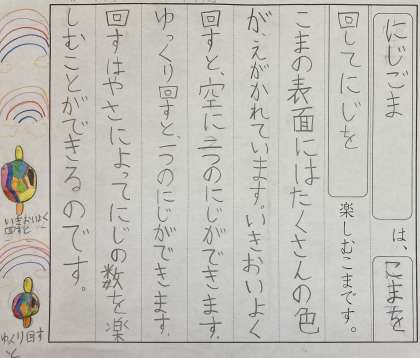 にじごま は、こまを
回してにじを 楽しむこまです。
こまの表面にはたくさんの色
が、えがかれています。いきおいよく
回すと、空に三つのにじができます。
ゆっくり回すと、一つのにじができます。
回すはやさによってにじの数を楽
しむことができるのです。
いきおいよく
回すと
ゆっくり回す
と